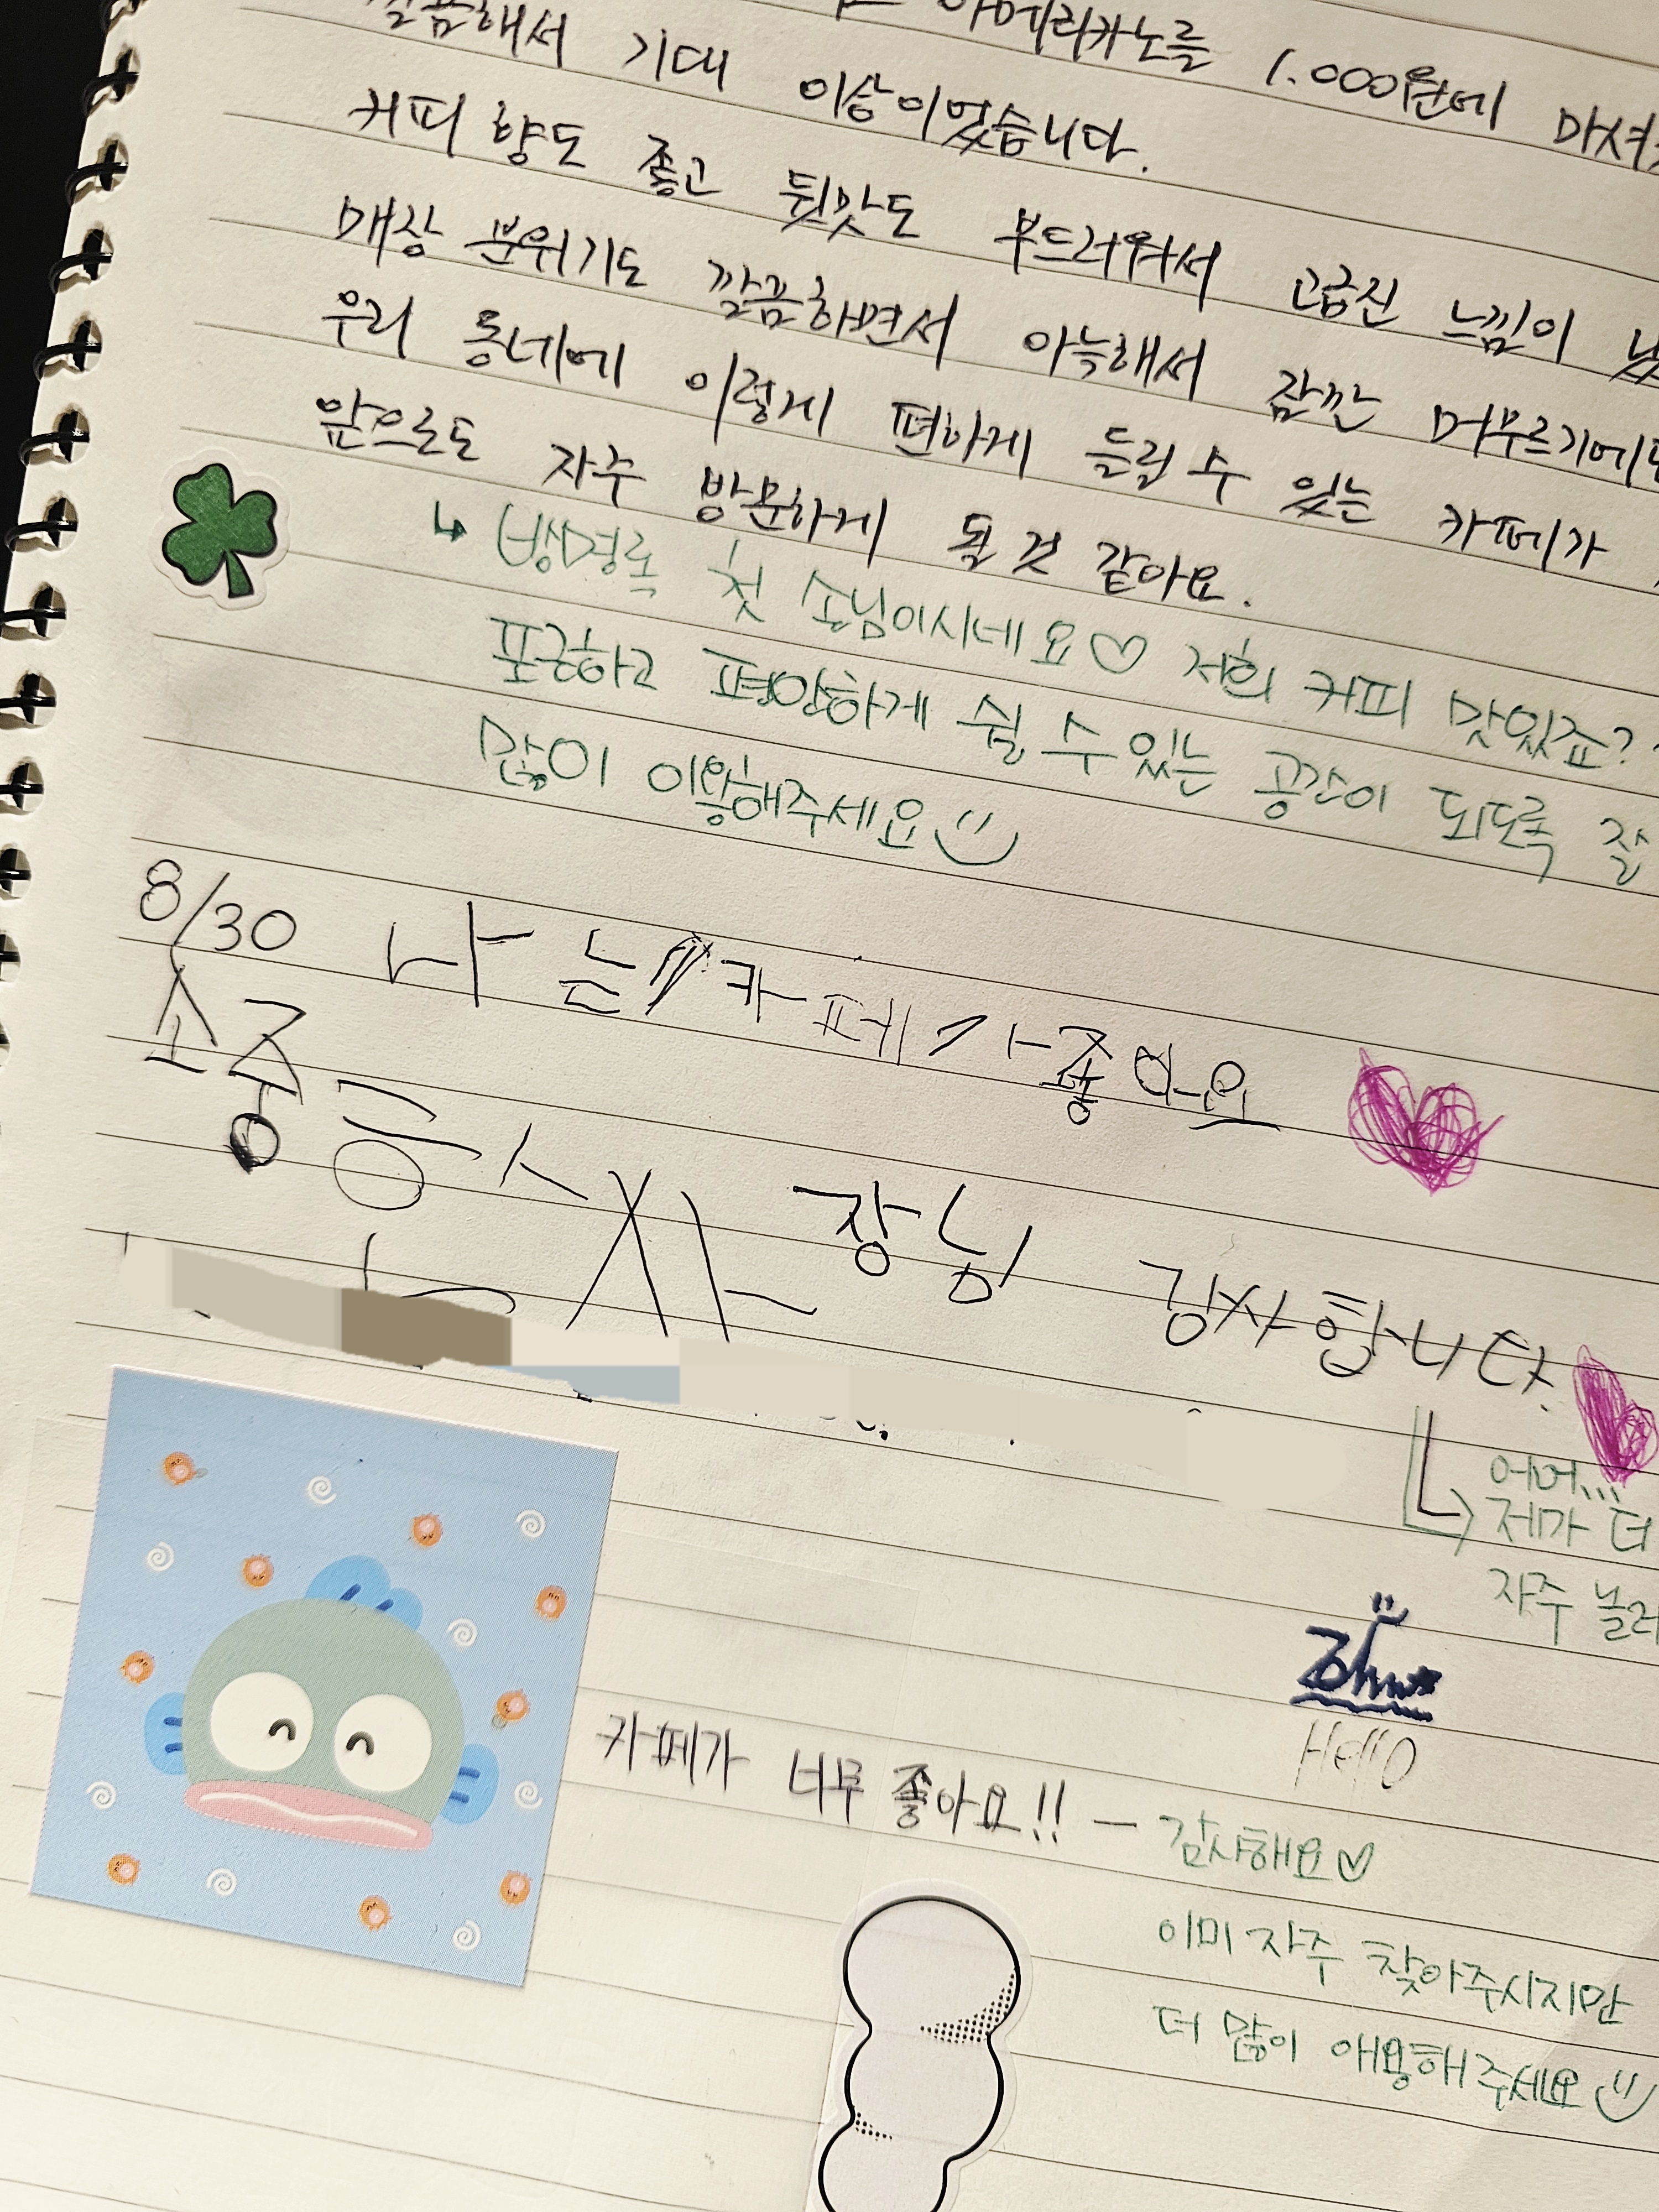 아메리카노를 1.000원에 마셔
깔끔해서 기대 이상이었습니다.
커피 향도 좋고 뒷맛도 부드러워서 고급진 느낌이
매장 분위기도 깔끔하면서 아늑해서 잠깐 머무르기에도
우리 동네에 이렇게 편하게 들릴 수 있는 카페가
앞으로도 자주 방문하게 될 것 같아요.
↳ 방명록 첫 손님이시네요♡ 저희 커피 맛있죠?
포근하고 평안하게 쉴 수 있는 공간이 되도록 잘
많이 이용해주세요
8/30 나는 카페가좋아요
소중
장님 감사합니다.
어머...
제가 더
자주 놀러
Hello
카페가 너무 좋아요!! — 감사해요♡
이미 자주 찾아주시지만
더 많이 애용해주세요